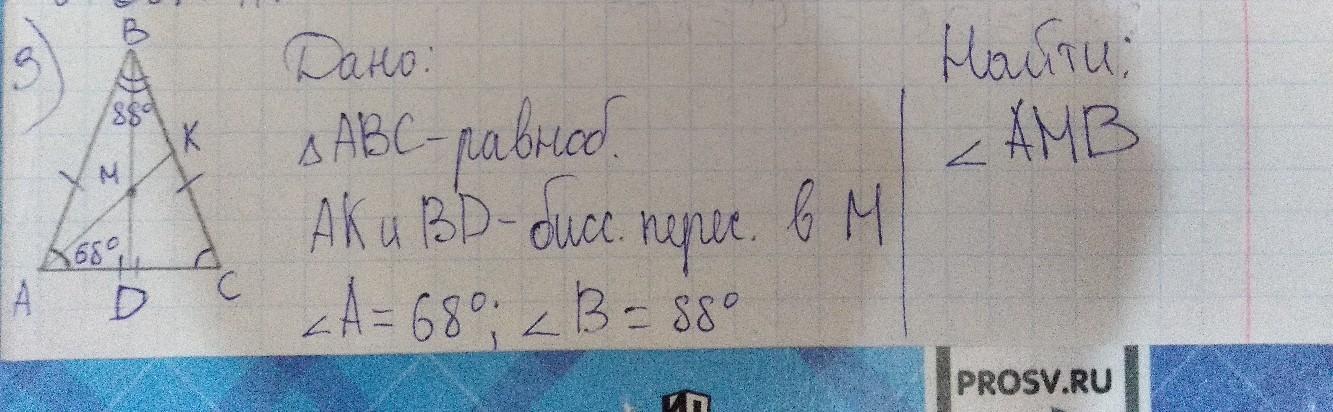 3)
B
88°
K
M
68°
A
D
C
Дано:
△ABC-равноб.
AK и BD-бисс. перес. в M
∠A=68°; ∠B=88°
Найти:
∠AMB
PROSV.RU